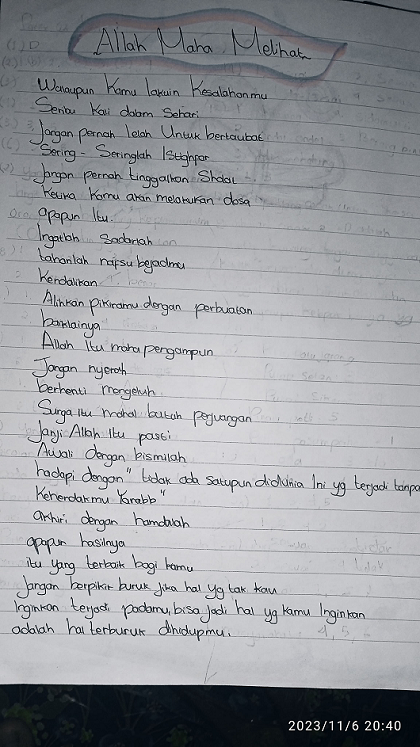 Allah Maha Melihat
Walaupun Kamu lakuin Kesalahanmu
Seribu Kali dalam Sehari
Jangan pernah lelah Untuk bertaubat
Sering - Seringlah Istighpar
Jangan pernah tinggalkan Sholat
Ketika Kamu akan melakukan dosa
apapun Itu.
Ingatlah Sadarlah
tahanlah napsu bejadmu
Kendalikan
Alihkan pikiranmu dengan perbuatan
baiklainya
Allah Itu maha pengampun
Jangan nyerah
berhenti mengeluh
Surga Itu mahal butuh perjuangan
Janji Allah Itu pasti
Awali dengan bismilah
hadapi dengan " tidak ada satupun didunia Ini yg terjadi tanpa
Kehendakmu Yarabb"
akhiri dengan hamdalah
apapun hasilnya
itu yang terbaik bagi kamu
Jangan berpikir buruk jika hal yg tak kau
Inginkan terjadi padamu, bisa jadi hal yg kamu Inginkan
adalah hal terburuk dihidupmu.
2023/11/6 20:40